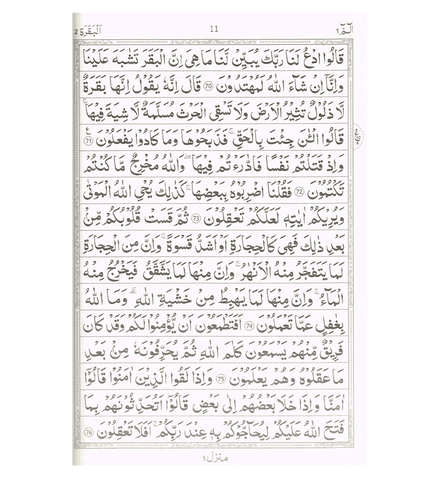 الٓمّٓ ١ 11 اَلْبَقَرَة ٢
قَالُوا ادْعُ لَنَا رَبَّكَ يُبَيِّنْ لَّنَا مَا هِيَ اِنَّ الْبَقَرَ تَشٰبَهَ عَلَيْنَا
وَاِنَّآ اِنْ شَآءَ اللّٰهُ لَمُهْتَدُوْنَ ۝70 قَالَ اِنَّهٗ يَقُوْلُ اِنَّهَا بَقَرَةٌ
لَّا ذَلُوْلٌ تُثِيْرُ الْاَرْضَ وَلَا تَسْقِي الْحَرْثَ مُسَلَّمَةٌ لَّا شِيَةَ فِيْهَا ۚ
قَالُوا الْـٰٔنَ جِئْتَ بِالْحَقِّ ۚ فَذَبَحُوْهَا وَمَا كَادُوْا يَفْعَلُوْنَ ۝71 ع
وَاِذْ قَتَلْتُمْ نَفْسًا فَادّٰرَءْتُمْ فِيْهَا ۭ وَاللّٰهُ مُخْرِجٌ مَّا كُنْتُمْ
تَكْتُمُوْنَ ۝72 فَقُلْنَا اضْرِبُوْهُ بِبَعْضِهَا ۭ كَذٰلِكَ يُحْيِ اللّٰهُ الْمَوْتٰى
وَيُرِيْكُمْ اٰيٰتِهٖ لَعَلَّكُمْ تَعْقِلُوْنَ ۝73 ثُمَّ قَسَتْ قُلُوْبُكُمْ مِّنْۢ
بَعْدِ ذٰلِكَ فَهِيَ كَالْحِجَارَةِ اَوْ اَشَدُّ قَسْوَةً ۭ وَاِنَّ مِنَ الْحِجَارَةِ
لَمَا يَتَفَجَّرُ مِنْهُ الْاَنْهٰرُ ۭ وَاِنَّ مِنْهَا لَمَا يَشَّقَّقُ فَيَخْرُجُ مِنْهُ
الْمَآءُ ۭ وَاِنَّ مِنْهَا لَمَا يَهْبِطُ مِنْ خَشْيَةِ اللّٰهِ ۭ وَمَا اللّٰهُ
بِغَافِلٍ عَمَّا تَعْمَلُوْنَ ۝74 اَفَتَطْمَعُوْنَ اَنْ يُّؤْمِنُوْا لَكُمْ وَقَدْ كَانَ
فَرِيْقٌ مِّنْهُمْ يَسْمَعُوْنَ كَلٰمَ اللّٰهِ ثُمَّ يُحَرِّفُوْنَهٗ مِنْۢ بَعْدِ
مَا عَقَلُوْهُ وَهُمْ يَعْلَمُوْنَ ۝75 وَاِذَا لَقُوا الَّذِيْنَ اٰمَنُوْا قَالُوْٓا
اٰمَنَّا ۚ وَاِذَا خَلَا بَعْضُهُمْ اِلٰى بَعْضٍ قَالُوْٓا اَتُحَدِّثُوْنَهُمْ بِمَا
فَتَحَ اللّٰهُ عَلَيْكُمْ لِيُحَآجُّوْكُمْ بِهٖ عِنْدَ رَبِّكُمْ ۭ اَفَلَا تَعْقِلُوْنَ ۝76
منزل ١